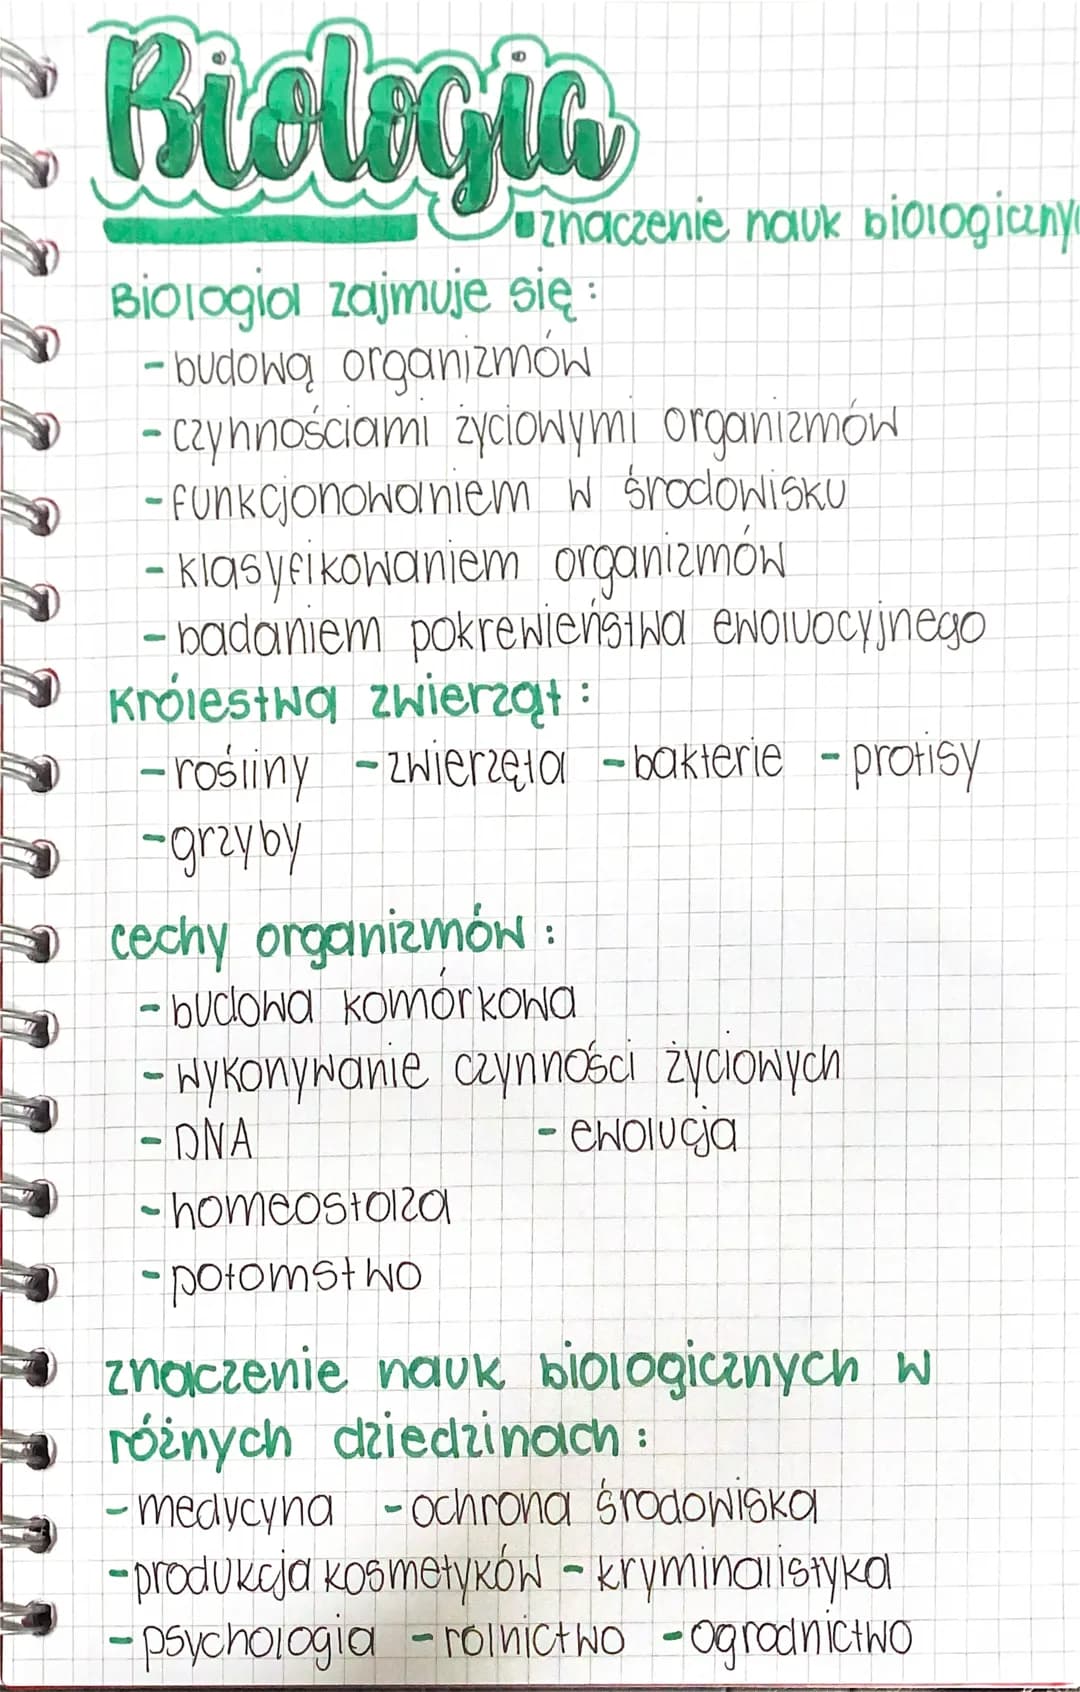 Biologia
znaczenie nauk biologiczny
Biologia zajmuje się:
- budową organizmów
- czynnościami życiowymi organizmów
- funkcjonowaniem w środowisku
- klasyfikowaniem organizmów
- badaniem pokrewieństwa ewolucyjnego
Królestwa zwierząt:
- rośliny - zwierzęta - bakterie - protisy
- grzyby
cechy organizmów:
- budowa komórkowa
- wykonywanie czynności życiowych
- DNA - ewolucja
- homeostaza
- potomstwo
znaczenie nauk biologicznych w
różnych dziedzinach:
- medycyna - ochrona środowiska
- produkcja kosmetyków - kryminalistyka
- psychologia - rolnictwo - ogrodnictwo